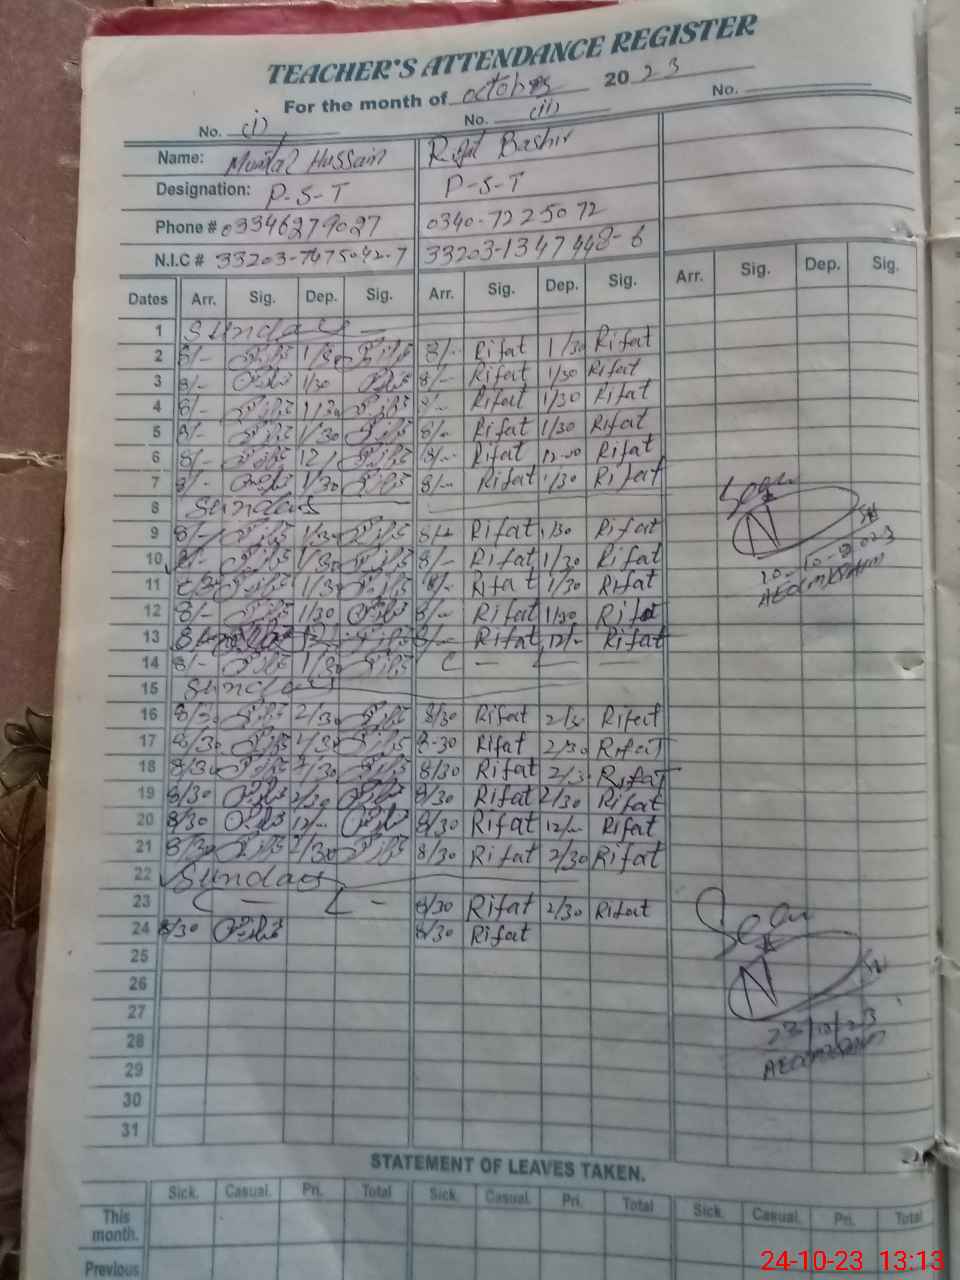 TEACHER'S ATTENDANCE REGISTER
For the month of October 2023
No. (i) No. (ii) No.
Name: Hussain Rifat Bashir
Designation: P-S-T P-S-T
Phone # 03346279027 0340-7225072
N.I.C # 33203-7475042-7 33203-1347448-6
Dates Arr. Sig. Dep. Sig. Arr. Sig. Dep. Sig. Arr. Sig. Dep. Sig.
1 Sunday
2 8/- 1/30 8/- Rifat 1/30 Rifat
3 8/- 1/30 8/- Rifat 1/30 Rifat
4 8/- 1/30 8/- Rifat 1/30 Rifat
5 8/- 1/30 8/- Rifat 1/30 Rifat
6 8/- 12/ 8/- Rifat 12-00 Rifat
7 8/- 1/30 8/- Rifat 1/30 Rifat
8 Sunday
9 8/- 1/30 Rifat 1/30 Rifat
10 8/- 1/30 8/- Rifat 1/30 Rifat
11 1/30 8/- Rifat 1/30 Rifat
12 8/- 1/30 8/- Rifat 1/30 Rifat
13 8/- 12/- 8/- Rifat 12/- Rifat
14 8/- 1/30 C - L -
15 Sunday
16 8/30 2/30 8/30 Rifat 2/30 Rifat
17 8/30 2/30 8-30 Rifat 2/30 Rifat
18 8/30 2/30 8/30 Rifat 2/30 Rifat
19 8/30 2/30 8/30 Rifat 2/30 Rifat
20 8/30 12/- 8/30 Rifat 12/- Rifat
21 8/30 2/30 8/30 Rifat 2/30 Rifat
22 Sunday
23 C - L - 8/30 Rifat 2/30 Rifat
24 8/30 8/30 Rifat
25
26
27
28
29
30
31
Seen
10-10-2023
Seen
23/10/23
STATEMENT OF LEAVES TAKEN.
Sick. Casual. Pri. Total Sick. Casual. Pri. Total Sick. Casual. Pri. Total
This month.
Previous
24-10-23 13:13